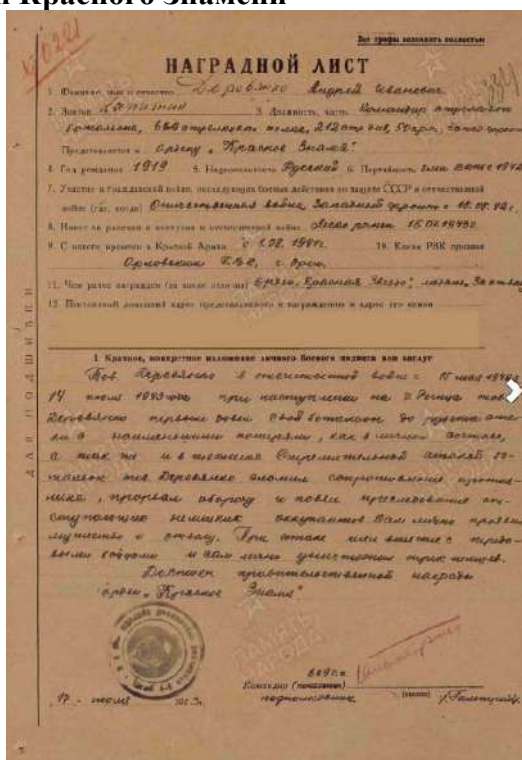 и Красного Знамени
Все графы заполнять полностью
НАГРАДНОЙ ЛИСТ
1. Фамилия, имя и отчество Деревянко Андрей Иванович
2. Звание Капитан 3. Должность, часть Командир стрелкового
батальона, 669 стрелкового полка, 212 стр див, 50 арм, Запад фронта
Представляется к ордену „Красное Знамя"
4. Год рождения 1919 5. Национальность Русский 6. Партийность Член ВКП(б) с 1942
7. Участие в гражданской войне, последующих боевых действиях по защите СССР и отечественной
войне (где, когда) Отечественная война Западный фронт с
8. Имеет ли ранения и контузии в отечественной войне Легко ранен 1943г.
9. С какого времени в Красной Армии с 1941г. 10. Каким РВК призван
Орловским Г.В.К., г. Орел.
11. Чем ранее награжден (за какие отличия) Орден „Красная Звезда", медаль „За отвагу
12. Постоянный домашний адрес представляемого к награждению и адрес его семьи
ДЛЯ ПОДШИВКИ
1. Краткое, конкретное изложение личного боевого подвига или заслуг
Тов. Деревянко в отечественной войне с 15 мая
14 июля 1943 года при наступлении на д. Речица тов.
Деревянко первым довел свой батальон до рубежа ата-
ки с наименьшими потерями, как в личном составе,
а так же и в технике. Стремительной атакой ба-
тальон тов. Деревянко сломил сопротивление против-
ника, прорвал оборону и повел преследование от-
ступающих немецких оккупантов. Сам лично проявил
мужество и отвагу. При атаке шел вместе с передо-
выми бойцами и сам лично уничтожил трех немцев.
Достоин правительственной награды
орден „Красное Знамя"
ПАМЯТЬ НАРОДА
Командир
подполковник
17 июля 1943г.